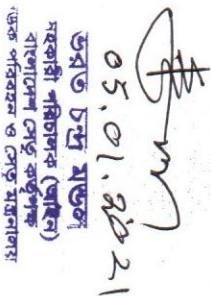 05.01.2021
ভরত চন্দ্র মন্ডল
সহকারী পরিচালক (প্রশাসন)
বাংলাদেশ সেতু কর্তৃপক্ষ
সড়ক পরিবহন ও সেতু মন্ত্রণালয়